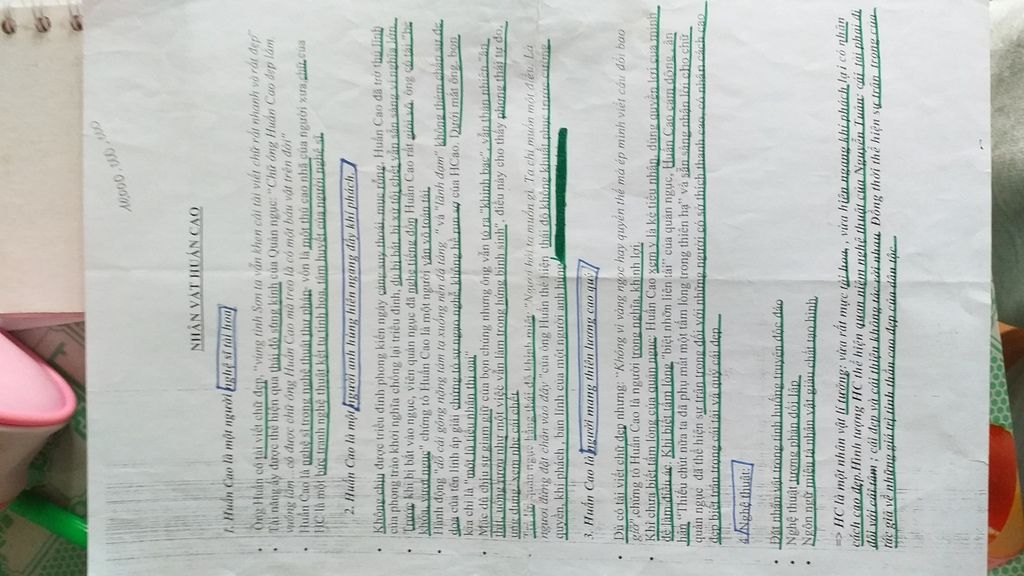 10000.000.000
NHÂN VẬT HUẤN CAO
1. Huấn Cao là một người nghệ sĩ tài hoa
Ông Huấn có tài viết chữ đẹp: "vùng tỉnh Sơn ta vẫn khen cái tài viết chữ rất nhanh và rất đẹp"
Tài năng ấy được thể hiện qua thái độ sùng kính của Quản ngục: "Chữ ông Huấn Cao đẹp lắm,
vuông lắm. có được chữ ông Huấn Cao mà treo là có một báu vật trên đời"
Huấn Cao là nghệ sĩ trong nghệ thuật thư pháp, vốn là một thú cao nhã của người xưa, chữ của
HC là một bức tranh nghệ thuật kết tụ tinh hoa, tâm huyết của người nghệ sĩ.
2. Huấn Cao là một người anh hùng hiên ngang đầy khí phách
Không chịu được triều đình phong kiến ngày càng suy thoái, mục ruỗng, Huấn Cao đã trở thủ lĩnh
của phong trào khởi nghĩa chống lại triều đình, dù bị bắt, bị xử tội chết vẫn sẵn sàng vì nghĩa lớn.
Trước khi bị bắt vào ngục, viên quản ngục đã nghe tiếng đồn Huấn Cao rất giỏi võ, ông có tài "bẻ
khóa, vượt ngục" chứng tỏ Huấn Cao là một người văn võ toàn tài.
Hành động "dỗ cái gông nặng tám tạ xuống nền đá tảng" và "lãnh đạm" không thèm chấp sự đe
dọa của tên lính áp giải chứng tỏ sự ngạo nghễ, không hề run sợ của HCao. Dưới mắt ông, bọn
kia chỉ là "một lũ tiểu nhân thị oai"
Mặc dù chịu sự giam giữ của bọn chúng nhưng ông vẫn tỏ ra "khinh bạc", vẫn thản nhiên "ăn
thịt, uống rượu như một việc vẫn làm trong hứng bình sinh", điều này cho thấy phong thái tự do,
ung dung, xem nhẹ cái chết.
Trả lời quản ngục bằng thái độ khinh miệt "Ngươi hỏi ta muốn gì. Ta chỉ muốn một điều. Là
ngươi đừng đặt chân vào đây" của ông Huấn thể hiện thái độ không khuất phục trước cường
quyền, khí phách, bản lĩnh của một người anh hùng
3. Huấn Cao là người mang thiên lương cao quý
Dù có tài viết chữ đẹp nhưng: "Không vì vàng ngọc hay quyền thế mà ép mình viết câu đối bao
giờ" chứng tỏ Huấn Cao là người trọng nghĩa, khinh lợi
Khi chưa biết tấm lòng của quản ngục: Huấn Cao xem y là kẻ tiểu nhân, dùng quyền lợi của mình
để làm điều ác. Khi biết tấm lòng "biệt nhỡn liên tài" của quản ngục, Huấn Cao cảm động, ân
hận "Thiếu chút nữa ta đã phụ mất một tấm lòng trong thiên hạ" và sẵn sàng nhận lời cho chữ
quản ngục, đã thể hiện sự trân trọng đối với những người có sở thích thanh cao, có nhân cách cao
đẹp biết trân trọng cái tài và quý cái đẹp
4. Nghệ thuật:
Đặt nhân vật trong tình huống truyện độc đáo
Nghệ thuật tương phản đối lập
Ngôn ngữ miêu tả nhân vật giàu chất tạo hình
=> HC là một nhân vật lí tưởng: vừa rất mực tài hoa, vừa hiên ngang khí phách lại có nhân
cách cao đẹp.Hình tượng HC thể hiện quan niệm nghệ thuật của Nguyễn Tuân: cái tài phải đi
đôi với cái tâm; cái đẹp và cái thiện không tác rời nhau. Đồng thời thể hiện sự trân trọng của
tác giả về những giá trị tinh thần cao đẹp của dân tộc